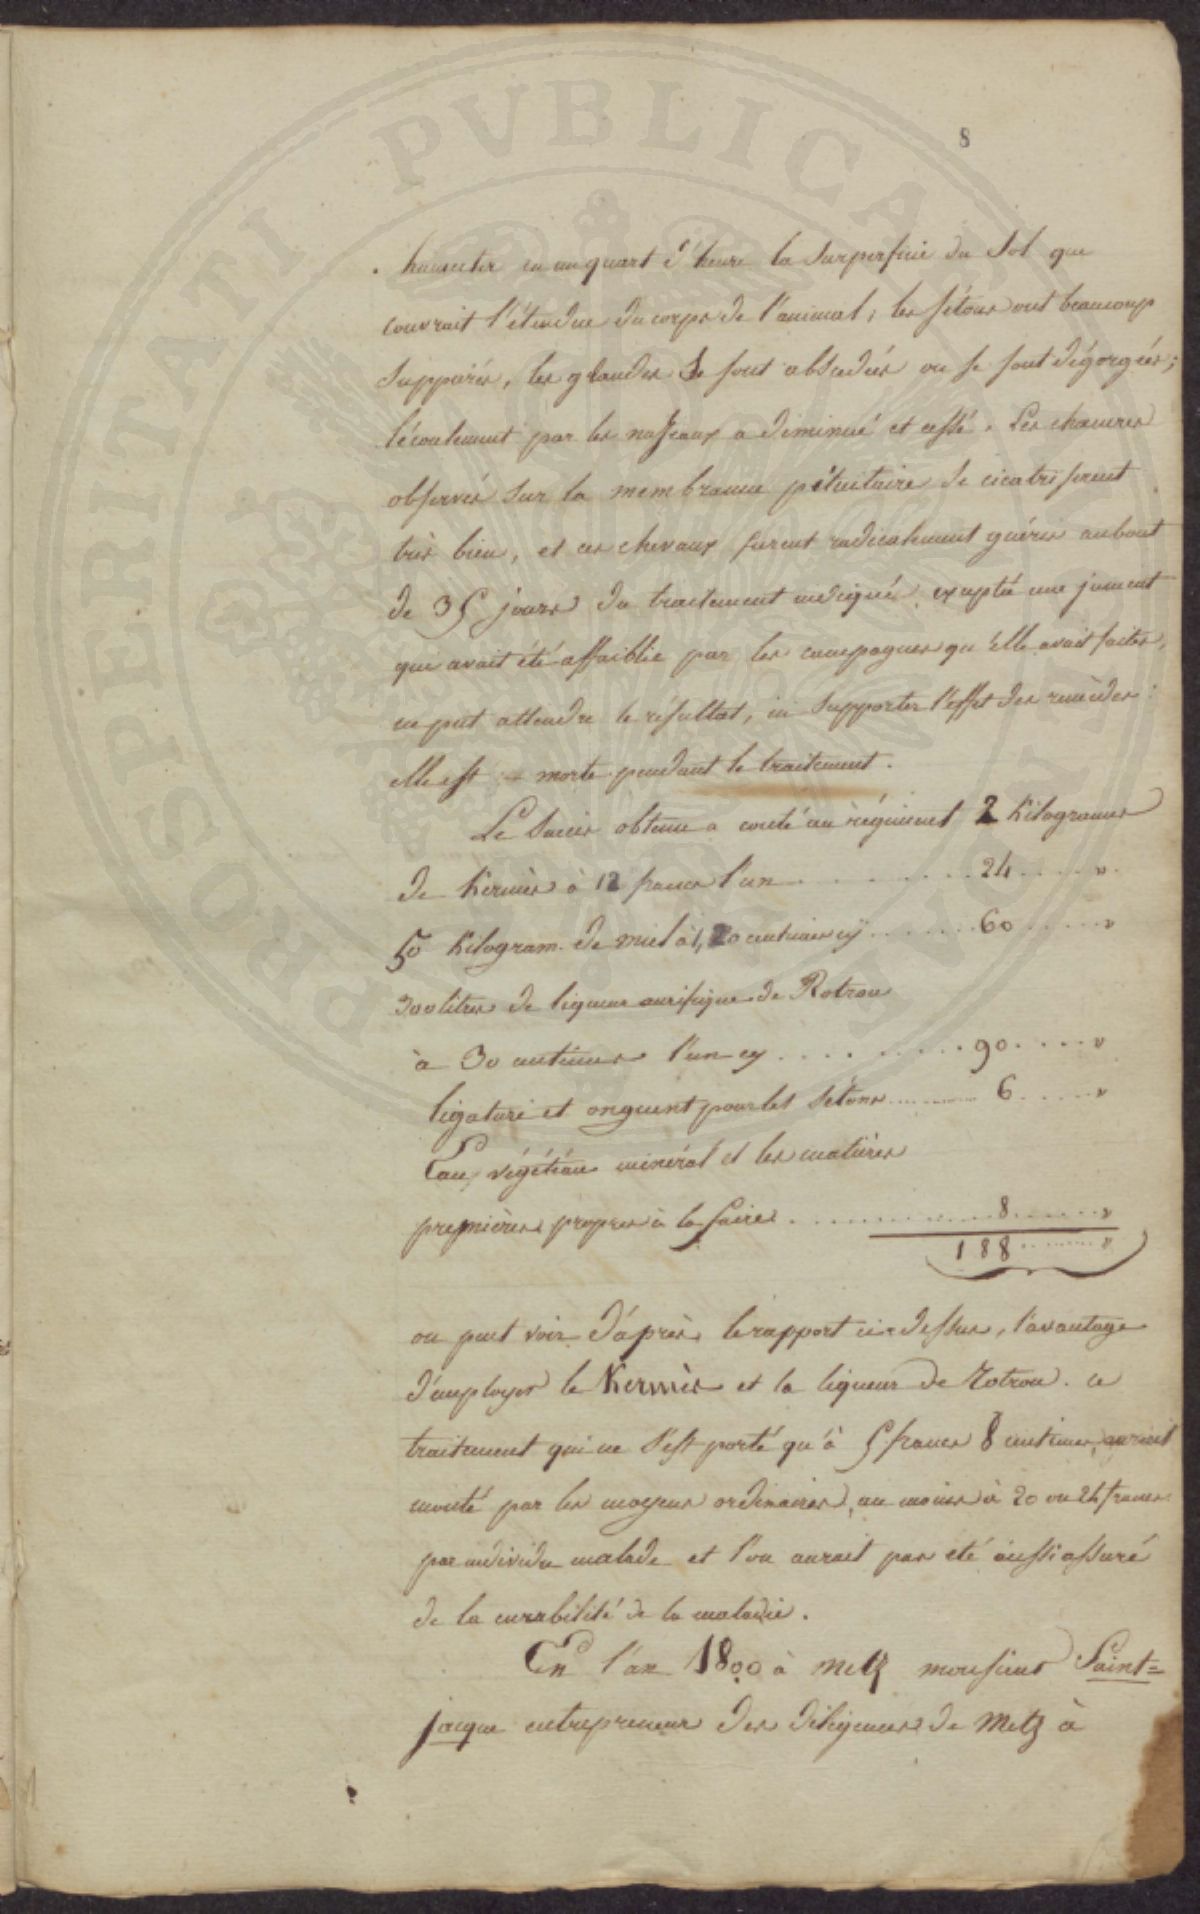 8
humecter en un quart d'heure la surperficie du sol que
couvrait l'étendue du corps de l'animal; les sétons ont beaucoup
suppurés, les glandes se sont abscedées ou se sont dégorgées;
l'écoulement par les naseaux a diminué et cessé. Les chancres
observés sur la membranne pituitaire se cicatrisèrent
très bien, et ces chevaux furent radicalement guéris aubout
de 35 jours du traitement indiqué, exceptée une jument
qui avait été affaiblie par les campagnes qu'elle avait faites,
ne put attendre le résultat, ni supporter l'effet des remèdes:
elle est morte pendant le traitement.
Le succès obtenu a couté au régiment 2 Kilogrames
de Kermès à 12 francs l'un ........ 24 ...... "
50 Kilogram. de miel à 1,20 centimes cy ....... 60 ...... "
300 litres de liqueur aurifique de Rotrou
à 30 centimes l'un cy .......... 90 ..... "
ligature et onguent pour les sétons .......... 6 ...... "
Eau végétéau minéral et les matières
premières propres à la faire ........... 8 ....... "
188 ........ "
on peut voir d'après le rapport ci-dessus, l'avantage
d'employer le Kermès et la liqueur de Rotrou. ce
traitement qui ne s'est porté qu'à 5 francs 8 centimes, auroit
monté par les moyens ordinaires, au moins à 20 ou 24 francs
par individu malade et l'on aurait pas été aussi assuré
de la curabilité de la maladie.
En l'an 1800 à Metz monsieur Saint=
jacque entrepreneur des diligences de Metz à
PROSPERITATI PVBLICAE